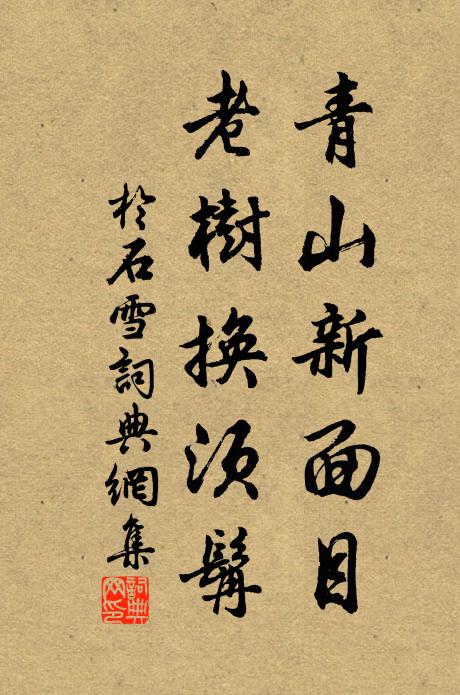 青山新面目
老樹換須髯
於石雪詞典網集
詞典
网印